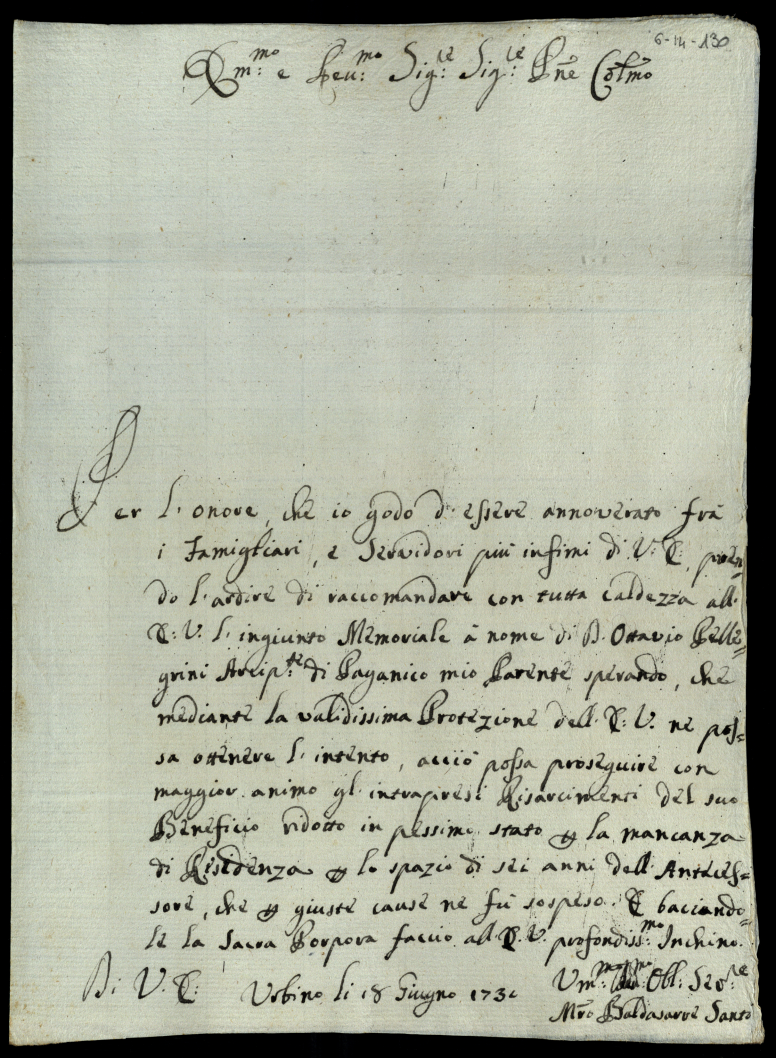 6-14-130
Em:mo e Reu:mo Sig:re Sig:re Pne Colmo
Per l'onore, che io godo d'essere annoverato frà
i Famigliari, e Servidori più infimi di V. E. pren=
do l'ardire di raccomandare con tutta caldezza all'
E: V. l'ingiunto Memoriale à nome di D. Ottavio Pelle=
grini Arcip:te di Paganico mio Parente sperando, che
mediante la validissima Protezione dell'E: V. ne pos=
sa ottenere l'intento, acciò possa proseguire con
maggior animo gl'intrapresi Risarcimenti del suo
Beneficio ridotto in pessimo stato p la mancanza
di Residenza p lo spazio di sei anni dell'Anteces=
sore, che p giuste cause ne fù sospeso. E baciando=
le la Sacra Porpora faccio all'E. V. profondiss:mo Inchino.
Di V. E: Urbino li 18 Giugno 173
Um:mo Obl: Ser:re
Mro Baldasarre Santo